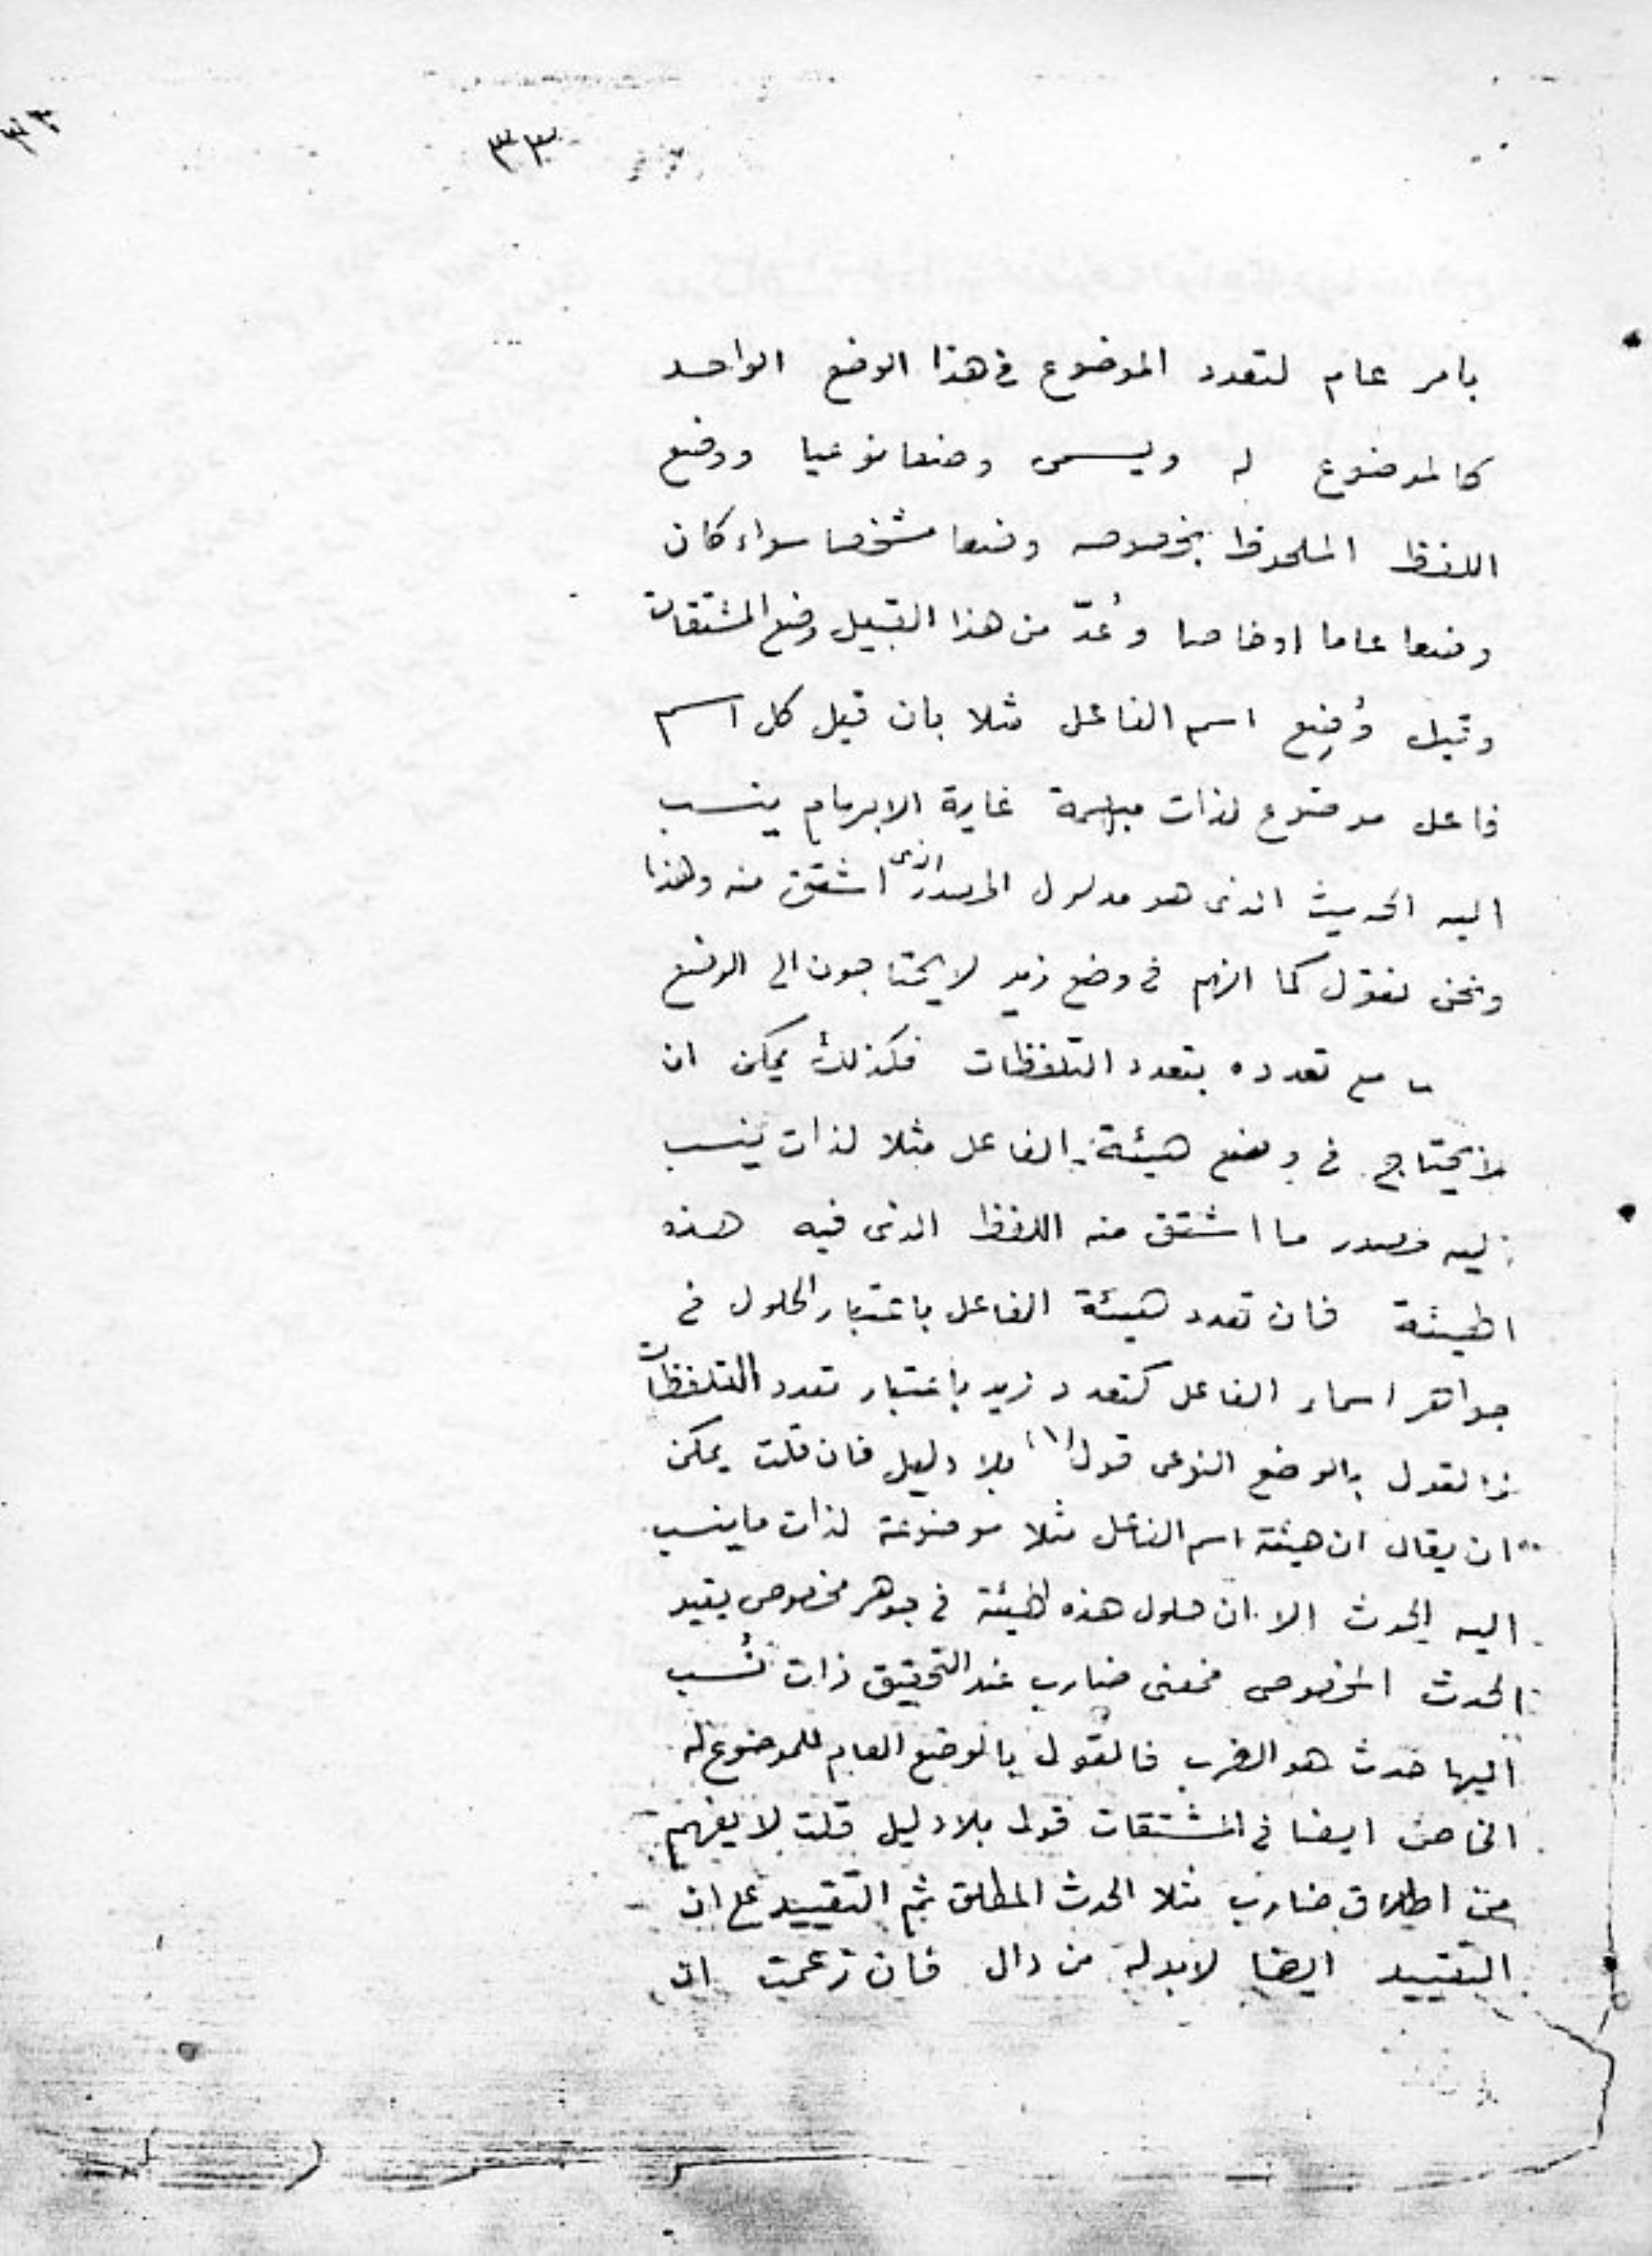 ٣٣
٣٣
بامر عام لتعدد الموضوع في هذا الوضع الواحد
كالموضوع له ويسمى وضعا نوعيا ووضع
اللفظ الملحوظ بخصوصه وضعا مشخصا سواء كان
وضعا عاما او خاصا وعُدّ من هذا القبيل وضع المشتقات
وقيل وُضِع اسم الفاعل مثلا بان قيل كل اسم
فاعل موضوع لذات مبهمة غاية الابهام ينسب
اليه الحديث الذى هو مدلول المصدر الذى اشتق منه وهذا
ونحن نقول كما انهم في وضع زيد لا يحتاجون الى الوضع
مع تعدده بتعدد التلفظات فكذلك يمكن ان
لا يحتاج في وضع هيئة الفاعل مثلا لذات ينسب
ليه مصدر ما اشتق منه اللفظ الذى فيه هذه
الهيئة فان تعدد هيئة الفاعل باعتبار الحلول في
جواهر اسماء الفاعل كتعدد زيد باعتبار تعدد التلفظات
فالقول بالوضع النوعى قول بلا دليل فان قلت يمكن
ان يقال ان هيئة اسم الفاعل مثلا موضوعة لذات ما ينسب
اليه الحدث الا ان حلول هذه الهيئة في جوهر مخصوص يقيد
الحدث المخصوص فمعنى ضارب عند التحقيق ذات نُسب
اليها حدث هو الضرب فالقول بالوضع العام للموضوع له
الخاص ايضا في المشتقات قول بلا دليل قلت لا يفهم
من اطلاق ضارب مثلا الحدث المطلق ثم التقييد على ان
التقييد ايضا لا بد له من دال فان زعمت ان